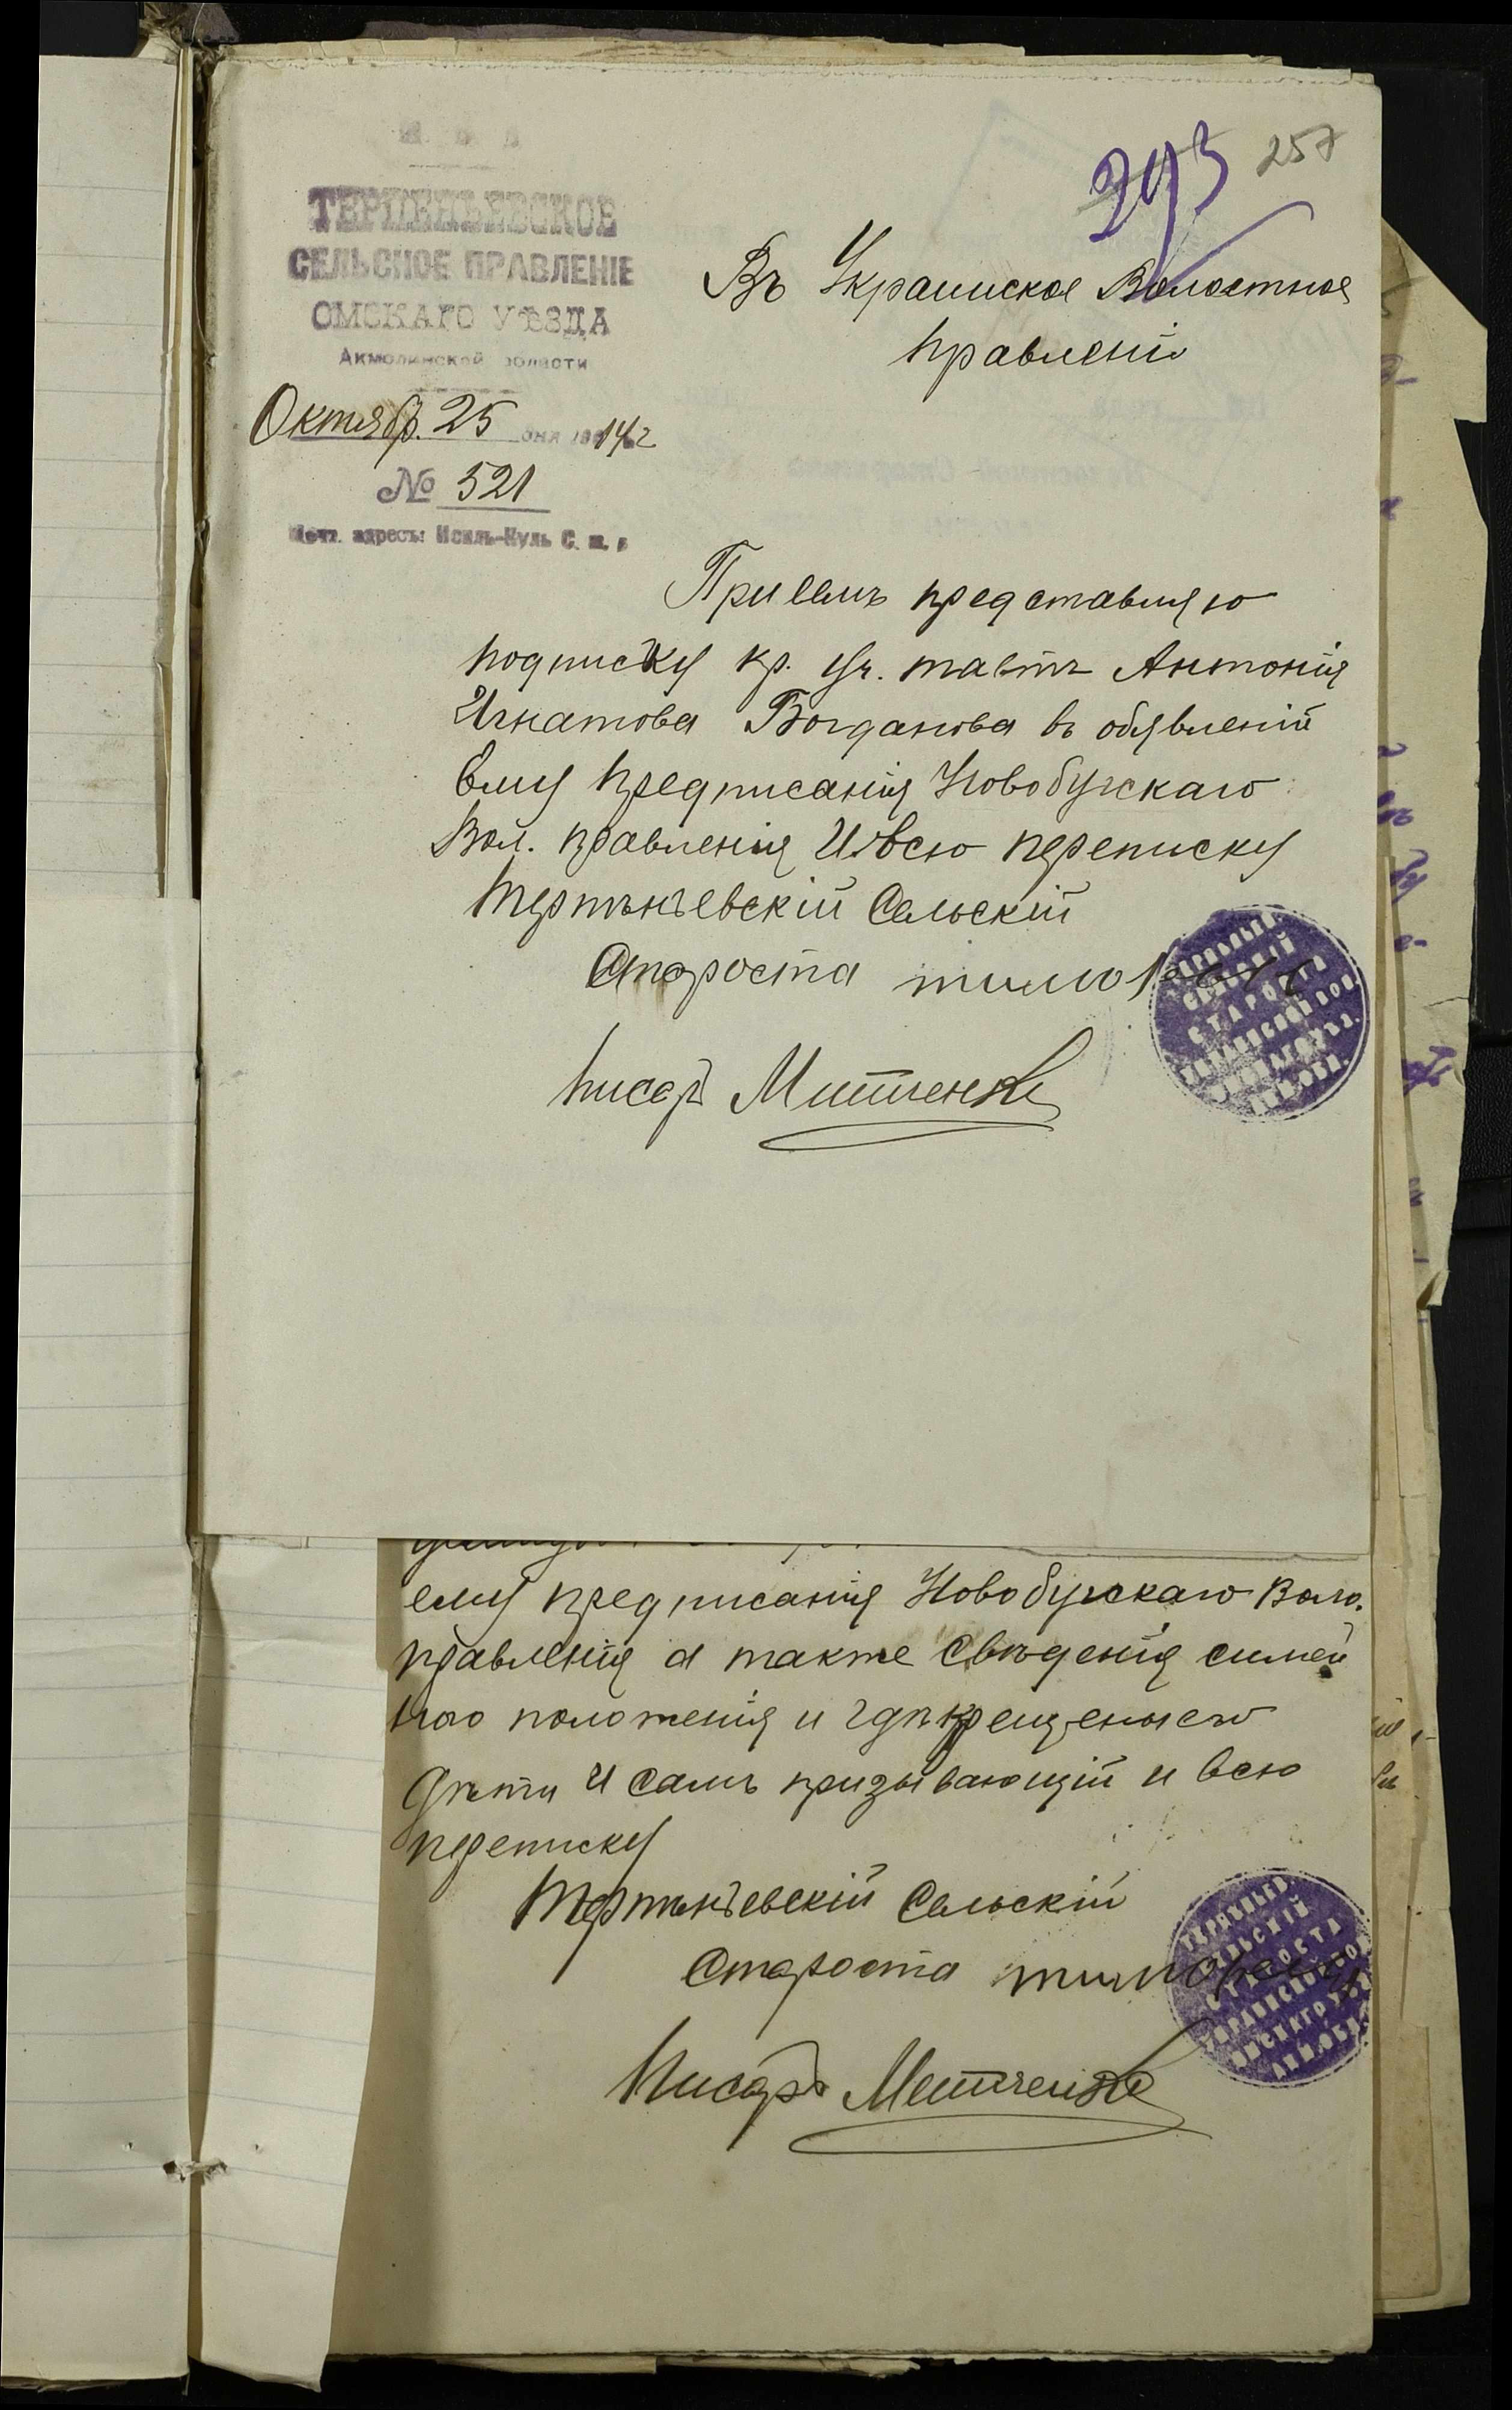 293 257
М. В. Д.
ТЕРПЕНЬЕВСКОЕ
СЕЛЬСКОЕ ПРАВЛЕНІЕ
ОМСКАГО УѢЗДА
Акмолинской области
Октябр. 25 дня 1912
№ 521
Почт. адресъ: Исиль-Куль С. ж. д
Въ Украинское Волостное
правленіе
При семъ представляю
подписку кр. уч. Антонія
Игнатова Богданова въ обявленій
Ему предписанія Новобугскаго
Вол. правленія И всю переписку
Терпѣньевскій Сельскій
Староста
писарь Митченко
ему предписанія Новобугскаго Воло.
правленія а также Свѣденія симей
ного положенія и гдѣ крещены его
Дѣти И самъ призывающій и всю
переписку
Терпѣньевскій Сельскій
Староста
Писарь Митченко